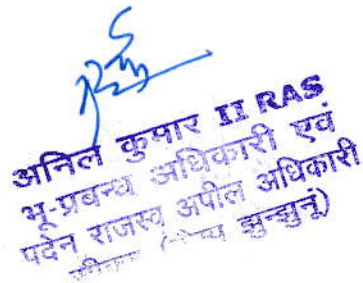 अनिल कुमार II RAS
भू-प्रबन्ध अधिकारी एवं
पदेन राजस्व अपील अधिकारी
झुन्झुनूं)